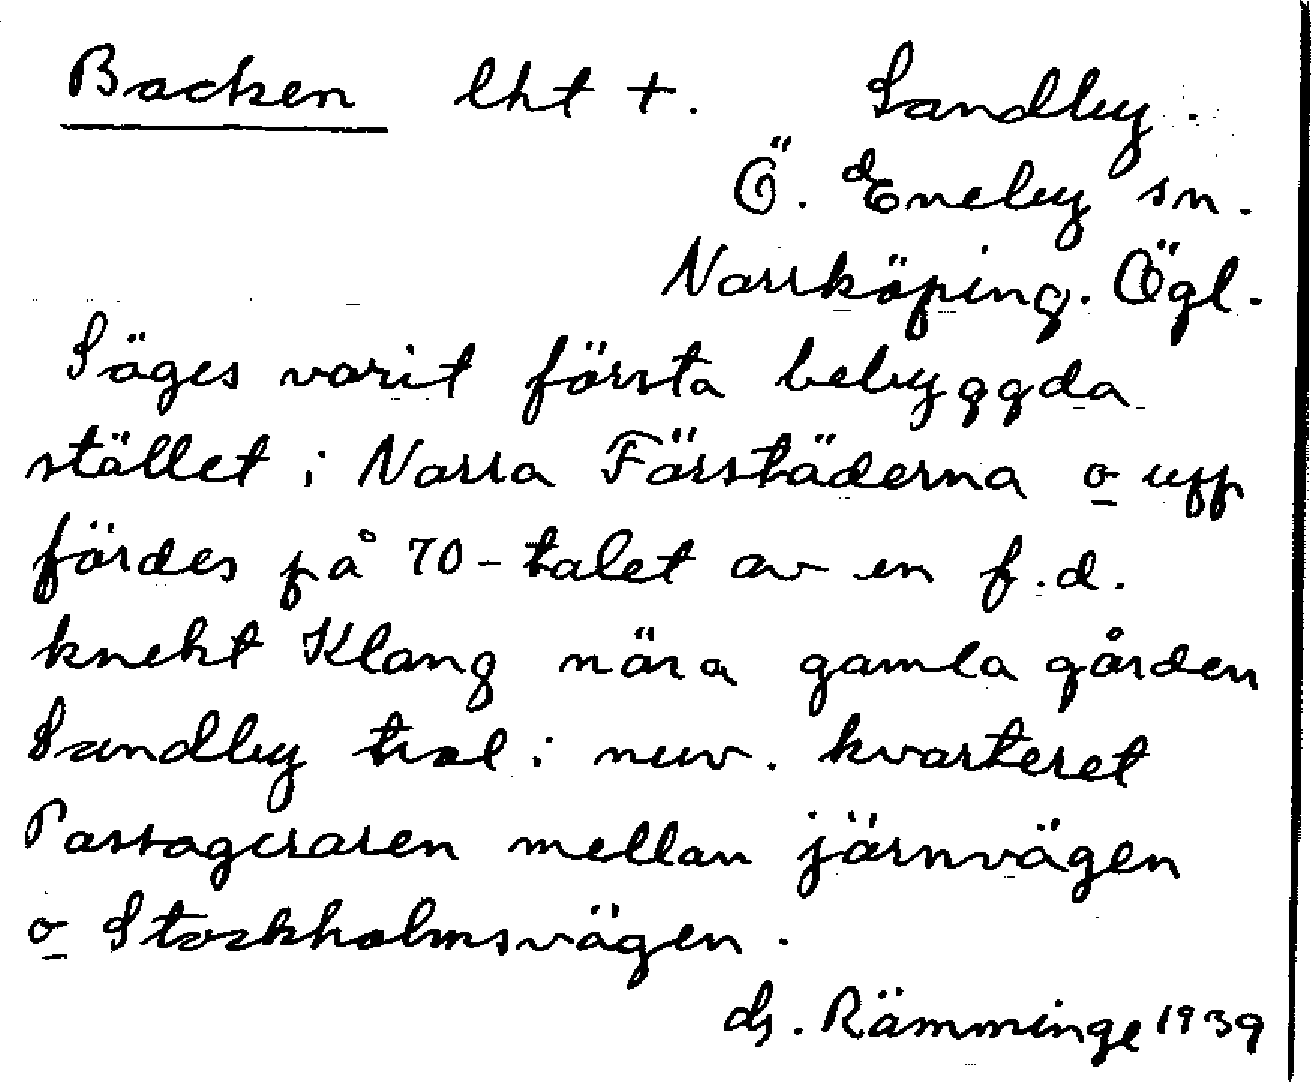 Backen lht +. Sandby.
Ö. Eneby sn.
Norrköping. Ögl.
Säges varit första bebyggda
stället i Norra Förstäderna o upp
fördes på 70-talet av en f.d.
knekt Klang nära gamla gården
Sandby trol i nuv. kvarteret
Passageraren mellan järnvägen
o Stockholmsvägen.
Rämminge 1939